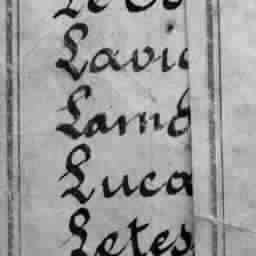 Lavi
Lamb
Luca
Letes